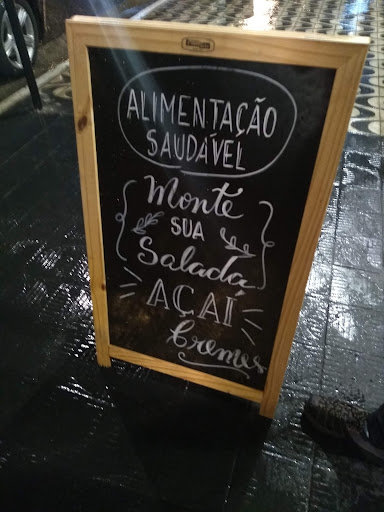 ALIMENTAÇÃO
SAUDÁVEL
Monte
SUA
Salada,
AÇAÍ
Cremes